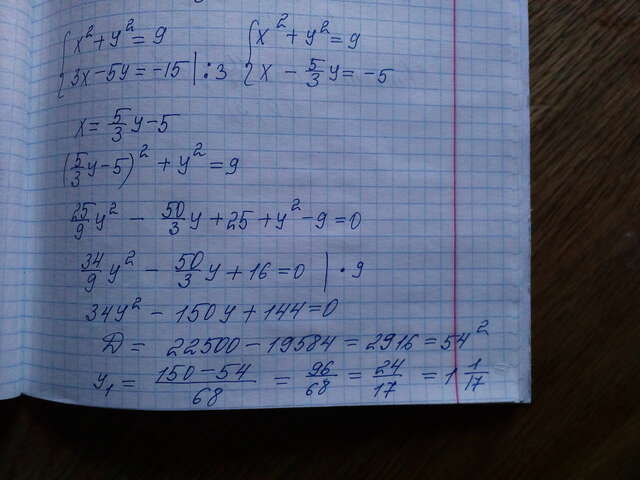 {x²+y²=9 {x²+y²=9
{3x-5y=-15|:3 {x - 5/3 y = -5
x = 5/3 y - 5
(5/3 y - 5)² + y² = 9
25/9 y² - 50/3 y + 25 + y² - 9 = 0
34/9 y² - 50/3 y + 16 = 0 | · 9
34y² - 150y + 144 = 0
D = 22500 - 19584 = 2916 = 54²
y₁ = (150-54)/68 = 96/68 = 24/17 = 1 1/17